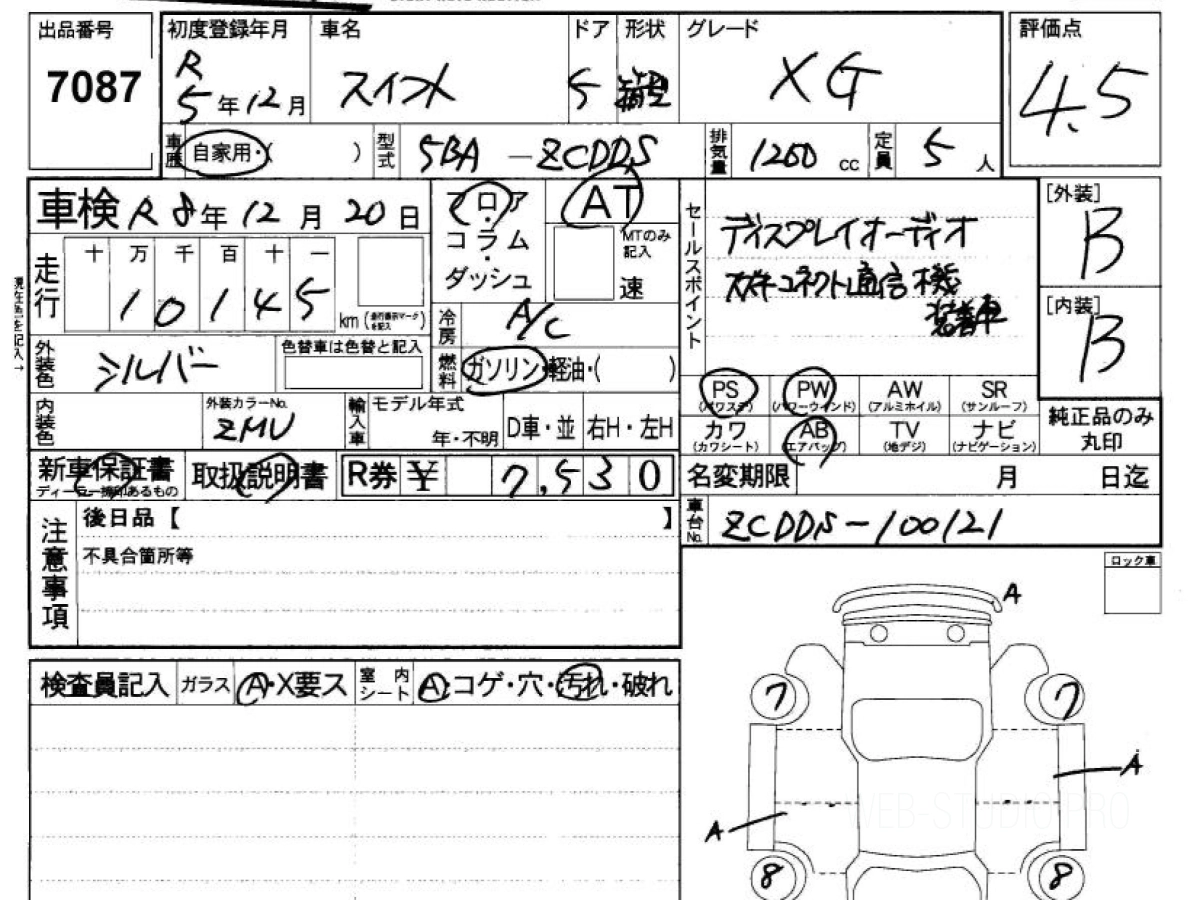 出品番号 初度登録年月 車名 ドア 形状 グレード 評価点
7087 R 5年12月 スイフト 5 XG 4.5
車歴 自家用・( ) 型式 5BA-ZCDDS 排気量 1200 cc 定員 5人
車検 R8年12月20日 フロア AT セールスポイント ディスプレイオーディオ [外装]
コラム MTのみ記入 B
走行 十 万 千 百 十 一 ダッシュ 速 スズキコネクト通信機 [内装]
現在色を記入→ 1 0 1 4 5 km (走行表示マークを記入) 冷房 A/C 装着車 B
外装色 シルバー 色替車は色替と記入 燃料 ガソリン・軽油・( )
PS (パワステ) PW (パワーウインド) AW (アルミホイル) SR (サンルーフ)
内装色 外装カラーNo. ZMU 輸入車 モデル年式 年・不明 D車・並 右H・左H
カワ (カワシート) AB (エアバッグ) TV (地デジ) ナビ (ナビゲーション) 純正品のみ丸印
新車保証書 ディーラー捺印あるもの 取扱説明書 R券 ¥ 7,530 名変期限 月 日迄
注意事項 後日品【 】 車台No. ZCDDS-100121
不具合箇所等 ロック車
A
検査員記入 ガラス A・X要ス 室内シート A・コゲ・穴・汚れ・破れ
7 7
A
WEB-STUDIO PRO
A
8 8